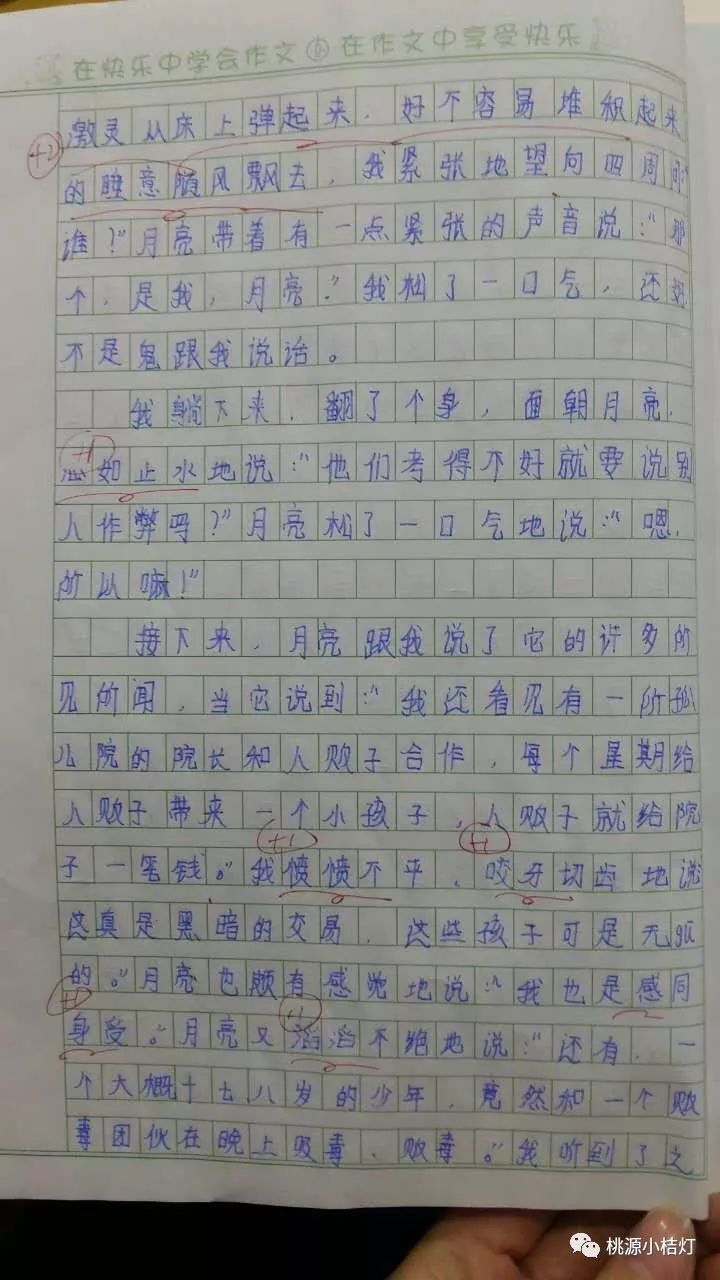 在快乐中学会作文 在作文中享受快乐
激灵从床上弹起来，好不容易堆积起来
+2
的睡意随风飘去，我紧张地望向四周
谁？”月亮带着有一点紧张的声音说：“那
个，是我，月亮。”我松了一口气，还好
不是鬼跟我说话。
我躺下来，翻了个身，面朝月亮，
+1
如止水地说：“他们考得不好就要说别
人作弊吗？”月亮松了一口气地说：“嗯，
所以嘛！”
接下来，月亮跟我说了它的许多所
见所闻，当它说到：“我还看见有一所孤
儿院的院长和人贩子合作，每个星期给
人贩子带来一个小孩子，人贩子就给院
+1 +1
子一笔钱。”我愤愤不平，咬牙切齿地说
这真是黑暗的交易，这些孩子可是无gū
的。”月亮也颇有感觉地说：“我也是感同
+1 +1
身受。”月亮又滔滔不绝地说：“还有，一
个大概十七八岁的少年，竟然和一个贩
毒团伙在晚上吸毒、贩毒。”我听到了之
桃源小桔灯